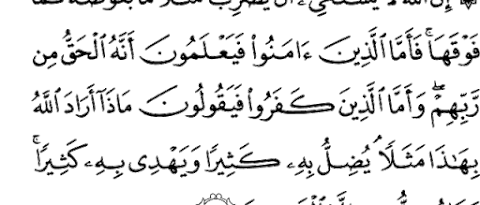 إِنَّ ٱللَّهَ لَا يَسْتَحْىِۦٓ أَن يَضْرِبَ مَثَلًا مَّا بَعُوضَةً فَمَا
فَوْقَهَا ۚ فَأَمَّا ٱلَّذِينَ ءَامَنُوا۟ فَيَعْلَمُونَ أَنَّهُ ٱلْحَقُّ مِن
رَّبِّهِمْ ۖ وَأَمَّا ٱلَّذِينَ كَفَرُوا۟ فَيَقُولُونَ مَاذَآ أَرَادَ ٱللَّهُ
بِهَٰذَا مَثَلًا ۘ يُضِلُّ بِهِۦ كَثِيرًا وَيَهْدِى بِهِۦ كَثِيرًا ۚ